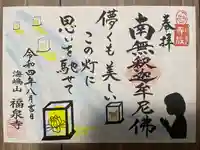 奉拝
南無釈迦牟尼佛
儚くも美しい
この灯に
思いを馳せて
令和四年八月吉日
海嶋山 福泉寺